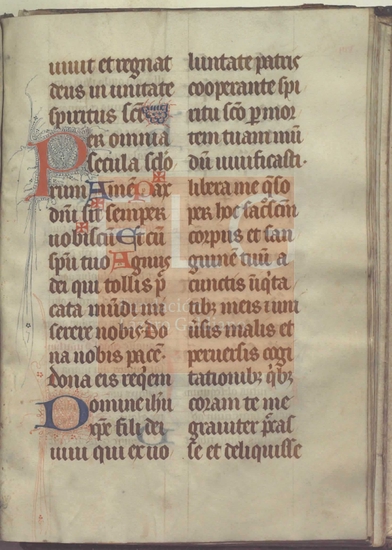 uiuit et regnat
deus in unitate
spiritus scti
Per omnia
secula sclo
rum Amen Pax
dni sit semper
uobiscu Et cu
spu tuo Agnus
dei qui tollis p
cata mudi mi
serere nobis Do
na nobis pace.
dona eis reqem
Domine ihu
xpe fili dei
uiui qui ex uo
luntate patris
cooperante spi
ritu sco p mor
tem tuam mu
du uiuificasti.
libera me qso
per hoc sacscm
corpus et san
guine tuu a
cunctis iiqta
tibz meis ium
uisis malis et
peruersis cogi
tationibz qbz
coram te me
grauiter pcas
se et deliquisse